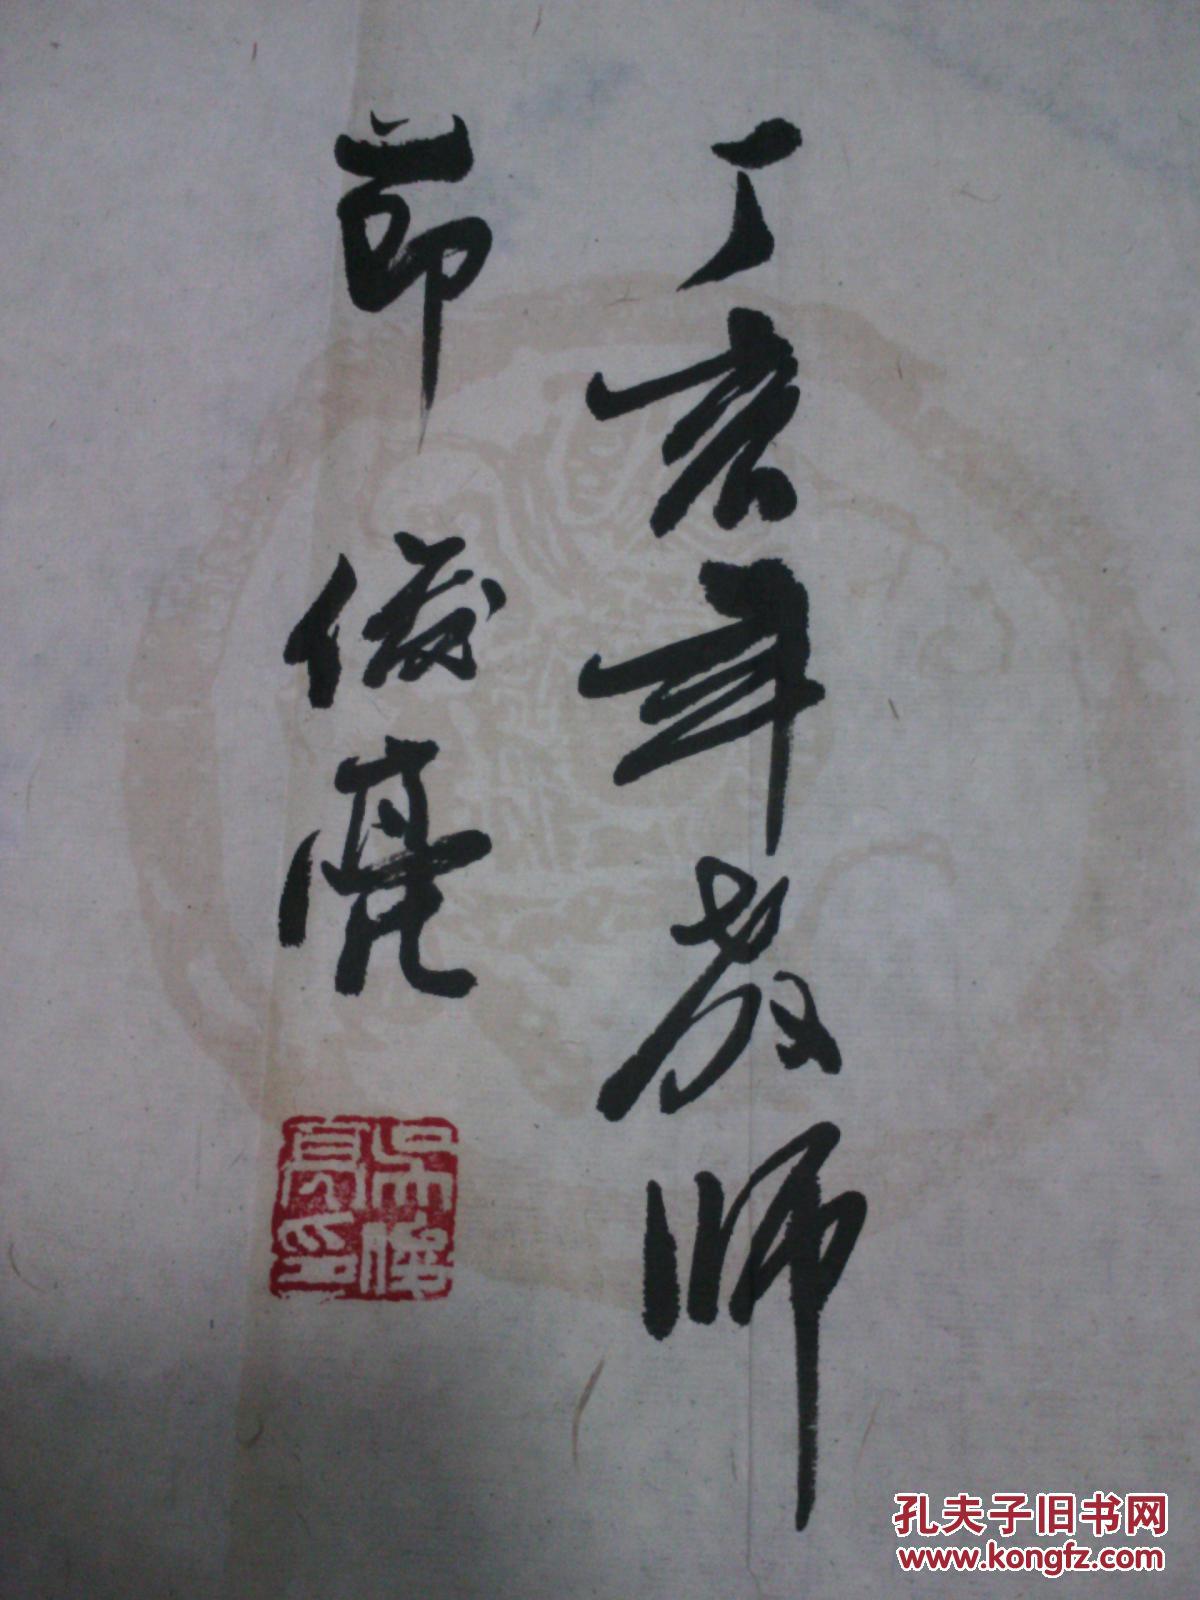 丁亥年教师
節俊亮
吴俊亮印
孔夫子旧书网
www.kongfz.com